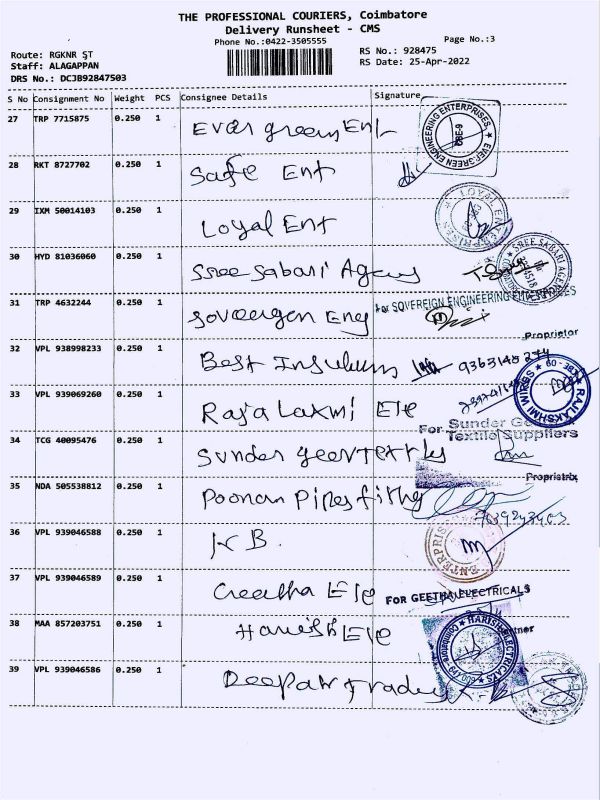 THE PROFESSIONAL COURIERS, Coimbatore
Delivery Runsheet - CMS
Phone No.:0422-3505555 Page No.:3
Route: RGKNR ST RS No.: 928475
Staff: ALAGAPPAN RS Date: 25-Apr-2022
DRS No.: DCJB92847503
S No Consignment No Weight PCS Consignee Details Signature
27 TRP 7715875 0.250 1 Ever green Ent
EVERGREEN ENGINEERING ENTERPRISES
28 RKT 8727702 0.250 1 Safe Ent
29 IXM 50014103 0.250 1 Loyal Ent
LOYAL ENTERPRISES
30 HYD 81036060 0.250 1 Sree Sabari Agency
SREE SABARI
31 TRP 4632244 0.250 1 Sovereign Eng
For SOVEREIGN ENGINEERING ENTERPRISES
Proprietor
32 VPL 938998233 0.250 1 Best
33 VPL 939069260 0.250 1 Raja Laxmi Ele
RAJLAKSHMI WIRES
For Sunder
Textile Suppliers
34 TCG 40095476 0.250 1 Sunder
Proprietrix
35 NDA 505538812 0.250 1 Poonam Pipes fitting
36 VPL 939046588 0.250 1 K B.
37 VPL 939046589 0.250 1 Geetha Ele
FOR GEETHA ELECTRICALS
38 MAA 857203751 0.250 1 Harish Ele
HARISH ELECTRICALS
39 VPL 939046586 0.250 1 Deepak Traders